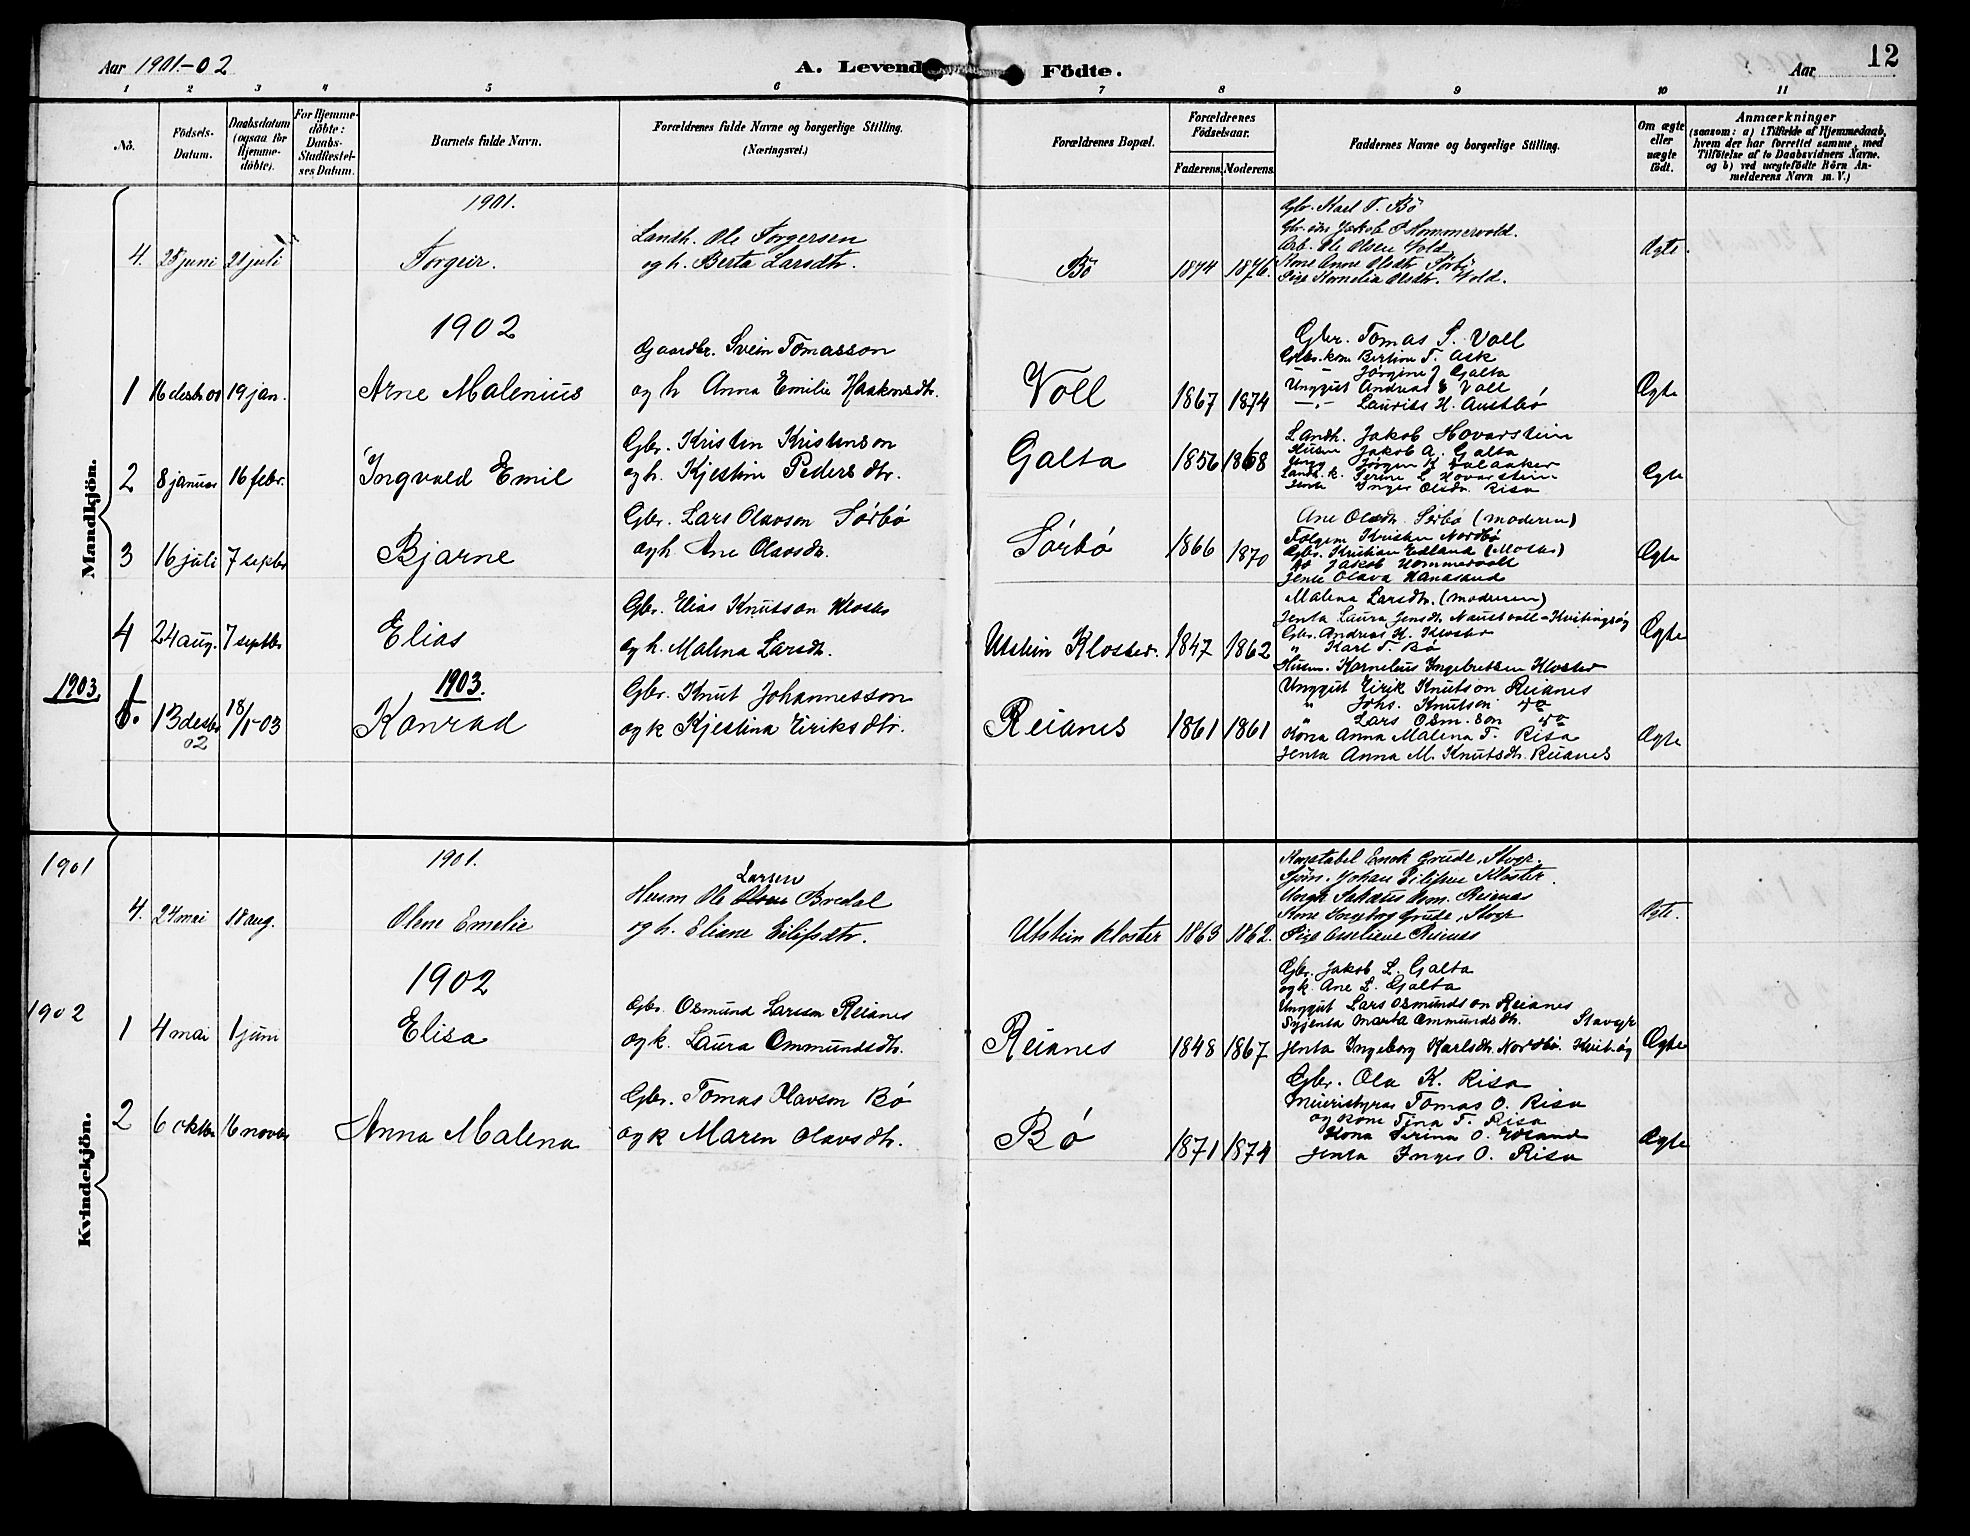 Aar 1901.-02
A. Levend Födte.
Aar
12
1 2 3 4 5 6 7 8 9 10 11
No.
Födsels-Datum.
Daabsdatum (ogsaa for Hjemme-döbte).
For Hjemme-döbte: Daabs-Stadfæstel-ses Datum.
Barnets fulde Navn.
Forældrenes fulde Navne og borgerlige Stilling.
(Næringsvei.)
Forældrenes Bopæl.
Forældrenes Födselsaar.
Faderens. Moderens.
Faddernes Navne og borgerlige Stilling.
Om ægte eller uægte födt.
Anmærkninger
(saasom: a) i Tilfælde af Hjemmedaab,
hvem der har forrettet samme, med
Tilföielse af to Daabsvidners Navne.
og b) ved uægtefödte Börn An-
melderens Navn m. V.)
Mandkjön.
1901.
4. 28 juni 21 juli Torgeir.
Landh. Ole Torgersen
og h. Berta Larsdtr.
Bö 1874 1876.
Gbr. Karl T. Bö
Gbr. sön Jakob P. Hommervold.
Arb. Ole Olsen Vold
Kone Anne Olsdtr Sörbö
Pige Kornelia Olsdtr. Vold.
Ægte.
1902
1 16 desbr 01 19 jan. Arne Malenius
Gaardbr. Svein Tomasson
og h Anna Emilie Haaknsdtr.
Voll 1867 1874
Gbr. Tomas S. Voll
Gbr. kone Bertine T. Ask
" - Jørgine J Galta
Unggut Andreas S Voll
-"- Laurits H. Austbø
Ægte
2 8 januar 16 febr. Ingvald Emil
Gbr. Kristen Kristenson
og h. Kjestine Pedersdtr.
Galta 1856 1868
Landh. Jakob Hovarstein
Husm Jakob A. Galta
Jørgen K
Landh. k. Serine L Hovarstein
Jenta Inger Olsdtr. Risa
Ægte
3 16 juli 7 septbr Bjarne
Gbr. Lars Olavson Sørbø
og h. Ane Olavsdtr.
Sørbø 1866 1870
Ane Olsdtr. Sørbø (moderen)
Følgem Kristen Nordbø
Gbr. Kristian Edland (Moster)
do Jakob Hommervoll
Jenta Olava Hanasand
Ægte
4 24 aug. 7 septbr Elias
Gbr. Elias Knutson Kloster
og h. Malena Larsdtr.
Utstein Kloster. 1847 1862
Malena Larsdtr. (moderen)
Jenta Laura Jensdtr. Naustvoll - Kvitingsøy
Gbr. Andreas H. Kloster
" Karl T. Bø
Husm. Kornelius Ingebretsen Kloster
Ægte
1903
1903.
1. 13 desbr 02 18/1-03 Konrad
Gbr. Knut Johannesson
og k Kjestina Eiriksdtr.
Reianes 1861 1861
Unggut Eirik Knutson Reianes
" Johs. Knutson do
" Lars Osm. son do
Kona Anna Malena T. Risa
Jenta Anna M. Knutsdtr. Reianes
Ægte
Kvindekjön.
1901
1901.
4. 24 mai 18 aug. Olene Emelie
Larsen
Husm Ole Olsen Bredal
og h. Eliane Eilefsdtr.
Utstein kloster 1863 1862.
Konstabel Enok Grude, Stvgr.
Sjöm. Johan Eilefsen Kloster.
Reienes
Kone Ingeborg Grude, Stvgr
Pige Reienes
Ægte.
1902
1902
1 4 mai 1 juni Elisa
Gbr. Osmund Larsson Reianes
og k. Laura Ommundsdtr.
Reianes 1848 1867
Gbr. Jakob L. Galta
og k. Ane L. Galta
Unggut Lars Osmundson Reianes
Syjenta Marta Ommundsdtr. Stavgr
Jenta Ingeborg Karlsdtr. Nordbø. Kvitsøy
Ægte
2 6 oktbr 16 novbr Anna Malena
Gbr. Tomas Olavson Bø
og k Maren Olavsdtr.
Bø 1871 1874
Gbr. Ola K. Risa
Meieristyrar Tomas O. Risa
og kone Tina T. Risa
Kona Serina O. Edland
Jenta Inger O. Risa
Ægte